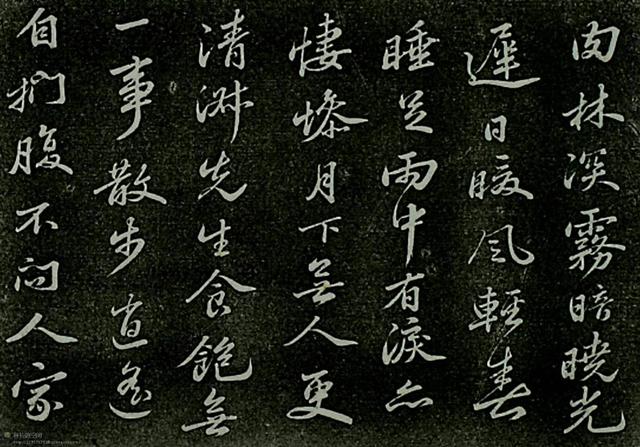 肉林深霧暗曉光
遲日暖風輕春
睡足雨中有淚亦
悽慘月下無人更
清淑先生食飽無
一事散步逍遙
自捫腹不問人家